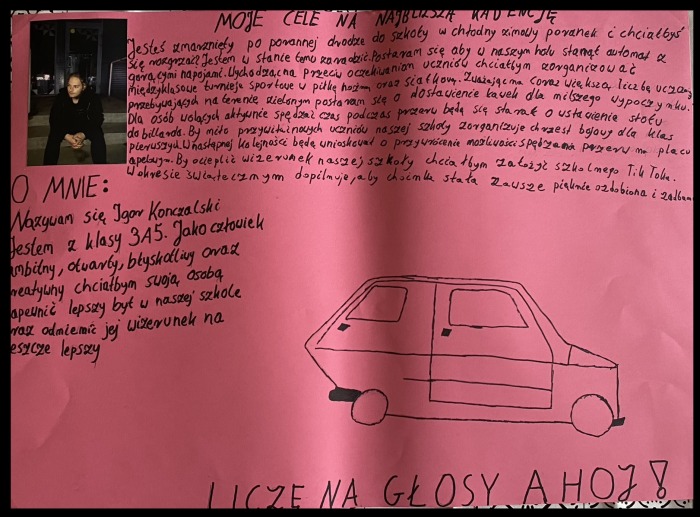 MOJE CELE NA NAJBLIŻSZĄ KADENCJĘ
Jesteś zmarznięty po porannej drodze do szkoły w chłodny zimowy poranek i chciałbyś
się rozgrzać? Jestem w stanie temu zaradzić. Postaram się aby w naszym holu stanął automat z
gorącymi napojami. Wychodząc na przeciw oczekiwaniom uczniów chciałbym zorganizować
międzyklasowe turnieje sportowe w piłkę nożną oraz siatkową. Zważając na coraz większą liczbę uczniów
przebywających na terenie zielonym postaram się o dostawienie ławek dla milszego wypoczynku.
Dla osób wolących aktywnie spędzać czas podczas przerw będę się starał o ustawienie stołu
do bilarda. By miło przywitać nowych uczniów naszej szkoły zorganizuje chrzest bojowy dla klas
pierwszych. W następnej kolejności będę wnioskował o przywrócenie możliwości spędzania przerw na placu
apelowym. By ocieplić wizerunek naszej szkoły chciałbym założyć szkolnego Tik Toka.
W okresie świątecznym dopilnuje, aby choinka stała zawsze pięknie ozdobiona i zadbana
O MNIE:
Nazywam się Igor Konczalski
Jestem z klasy 3A5. Jako człowiek
ambitny, otwarty, błyskotliwy oraz
kreatywny chciałbym swoją osobą
zapewnić lepszy byt w naszej szkole
oraz odmienić jej wizerunek na
jeszcze lepszy
LICZĘ NA GŁOSY AHOJ!